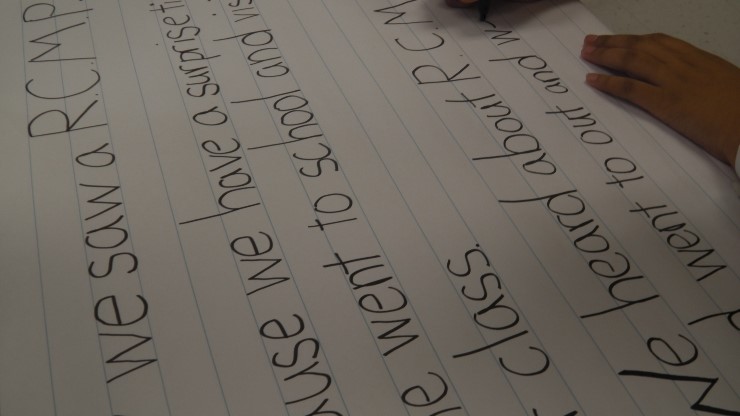 we saw a R.C.M.P.
we have a surprise
went to school and
class.
We heard about R.C.M
went to out and w